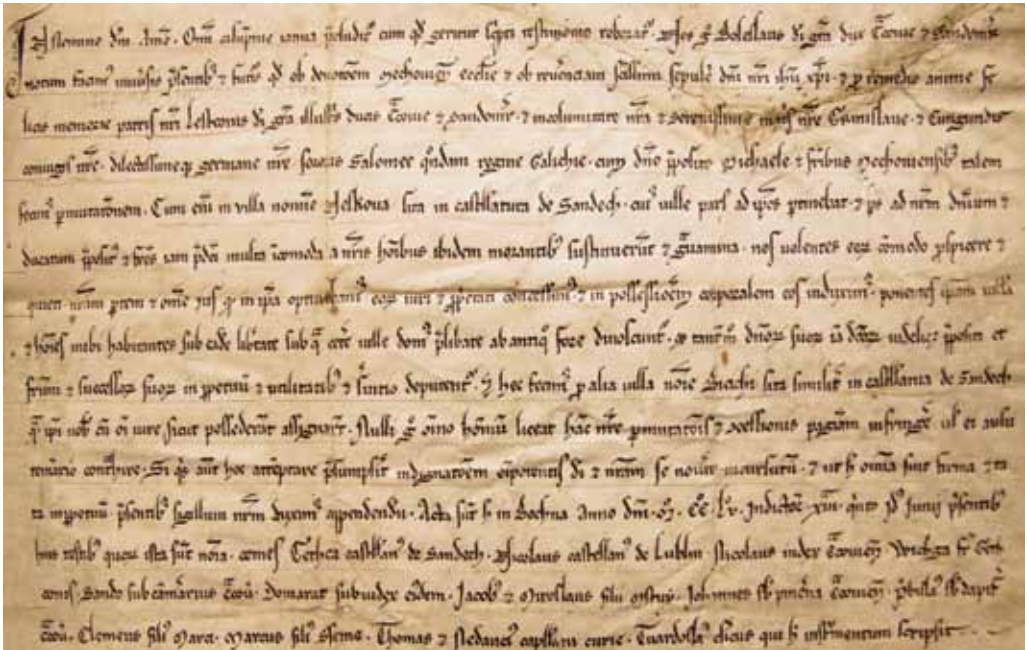 In nomine dni. Amen. Omi calupnie ianua pcludit cum qd geritur scripti testimonio roborat. Nos g Bolezlaus di gra dux Cracouie et Sandomir
notum facim uniuersis psentib et futis qd ob deuotoem Mechouien ecclie et ob reuerenciam sctissimi sepulc dni nri ihu xpi et p remedio anime fe
licis memorie patris nri Lestconis di gra illustris ducis Cracouie et Sandomir et incolumitate nra et serenissime matis nre Grimislaue et Cungundis
coniugis nre dilectissimeq germane nre sororis Salomee qndam regine Galichie cum dno pposito Michaele et fribus Mechouiensibus talem
fecim pmutatonem. Cum eni in villa nomine Jelkoua sita in castellatura de Sandech cui ville pars ad ipsos ptinebat et ps ad nrm dnium et
ducatum pposit et fres iam pdci multa icomoda a nris hoibus ibidem morantib sustinuerut et grauamina nos uolentes eoz comodo pspicere et
quieti nram ptem et omne jus qd in ipa optinuim eoz iuri et ppetati concessim et in possessioem corporalem eos induxim ponentes ipam villa
et hoies inibi habitantes sub eade libtate sub q cete ville dom plibate ab antiq fore dinoscunt et tantm dnoz suoz ia dcoz videlicz ppositi et
frum et successoz suoz in ppetuu et utilitatib et seruitio deputent. Hoc fecim p alia villa noie sita similit in castellania de Sandech
q ipi nob cu oi iure sicut possederat assignart. Nulli g oino hoim liceat hac nre pmutatois et ccessionis paginam infringe ul ei ausu
temerario contraire. Si qs aut hoc atteptare psumpsit indignatoem oipotentis di et nram se nouit incursuru et ut h omia sint firma et ra
ta inppetuu psentib sigillum nrm duxim appendendu. Acta sut h in Bochna Anno dni M CC LV Indictoe XIII qnto Id Junij psentib
hiis testib quoz ista sut noia comes castellan de Sandech. Nicolaus castellan de Lublin. Nicolaus iudex Cracouien
Sando subcamrarius Cracou. Domarat subiudex eidem. Jacob et Miroslaus filii Johannes sb pincna Cracouien. sb dapif
Cracou. Clemens fili Marci. Marcus fili Thomas et capllani curie. Tuardosla clicus qui h instrmentum scripsit.